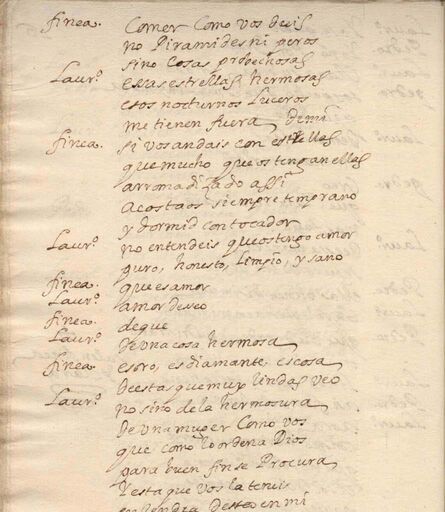 finea. Comer Como vos decis
no Piramides ni peros
sino Cosas probechosas
Laur.º esas estrellas hermosas
esos nocturnos Luceros
me tienen fuera de mi
finea. si vos andais con estrellas
que mucho que os tengan ellas
arromadizado assi
acostaos siempre temprano
y dormid con tocador
Laur.º no entendeis que os tengo amor
puro, honesto, Limpio, y sano
finea. que es amor
Laur.º amor deseo
finea. de que
Laur.º de una cosa hermosa
finea. es oro, es diamante, es cosa
de estas que muy lindas veo
Laur.º no sino de la hermosura
de una muger Como vos
que como lo ordena Dios
para buen fin se Procura
y esta que vos la teneis
engendra deseo en mi